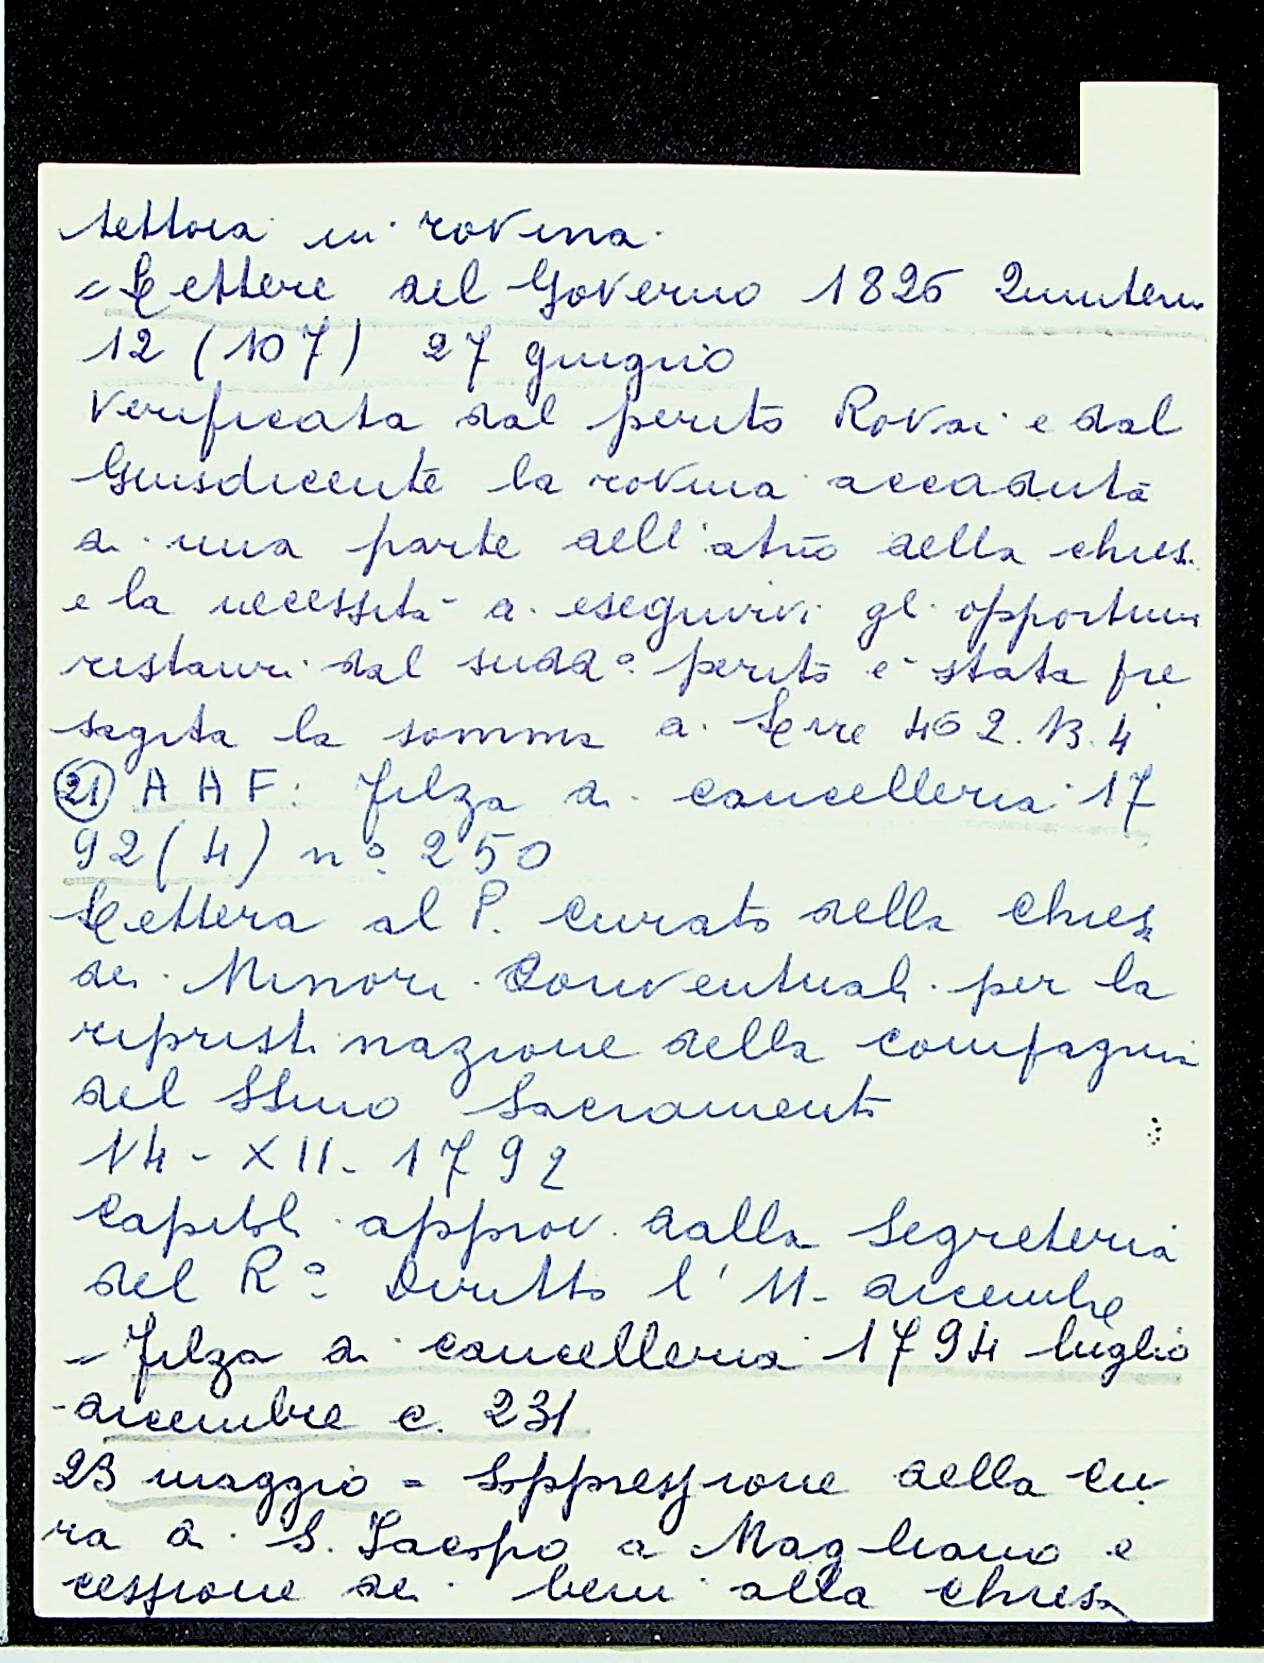 tettoia in rovina.
= Lettere del Governo 1826 Quintern
12 (107) 27 giugno
Verificata dal perito Rovai e dal
Giusdicente la rovina accaduta
di una parte dell'atrio della chies.
e la necessità di eseguirvi gl'opportuni
restauri dal sudd° perito è stata pre
sagita la somma di Lire 462.13.4
(21) A A F: Filza di cancelleria 17
92 (4) n° 250
Lettera al P. curato della Chies.
dei Minori Conventuali per la
ripristinazione della compagnia
del SSmo Sacramento
14 - XII - 1792
Capitoli approv. dalla Segreteria
del R° Diritto l'11 - dicembre
= Filza di cancelleria 1794 luglio
- dicembre c. 231
23 maggio = Soppressione della cu
ra di S. Jacopo a Magliano e
cessione dei beni alla chiesa